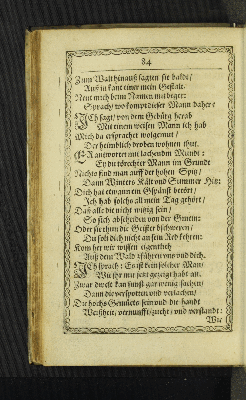 84
Zum Wald hinauß sagten sie balde/
Auß in samt einer mein Gestalt.
Nent mich beym Namen mit beger:
Sprach/ wo kompt dieser Mann daher?
Ich sagt/ von dem Gebürg herab
Mit einem weisen Mann ich hab
Mich da ersprachet wolgemut/
Der heimlich droben wohnen thut.
Er antwortet mit lachendm Mund:
Ey du törechter Mann im Grundt
Nichts find man auff der hohen Spitz/
Dann Winters Kält und Sommer Hitz:
Dich hat etwann ein Gspänst bethört/
Ich hab solchs all mein Tag gehört/
Daß alle die nicht witzig sein/
So sich abscheiden von der Gmein:
Oder sie thun die Geister bschweren/
Du solt dich nicht an sein Red kehren:
Kom her wir wissen eigentlich
Auß dem Wald zführen uns und dich.
Ich sprach: Es ist kein solcher Man/
Wie ihr mir jetzt gezeigt habt an.
Zwar diese kan sunst gar wenig suchen/
Dann die verspotten und verlachen/
Die hochs Gemüets sein und die handt
Weißheit/ vernunfft/ zucht/ und verstandt:
Wie